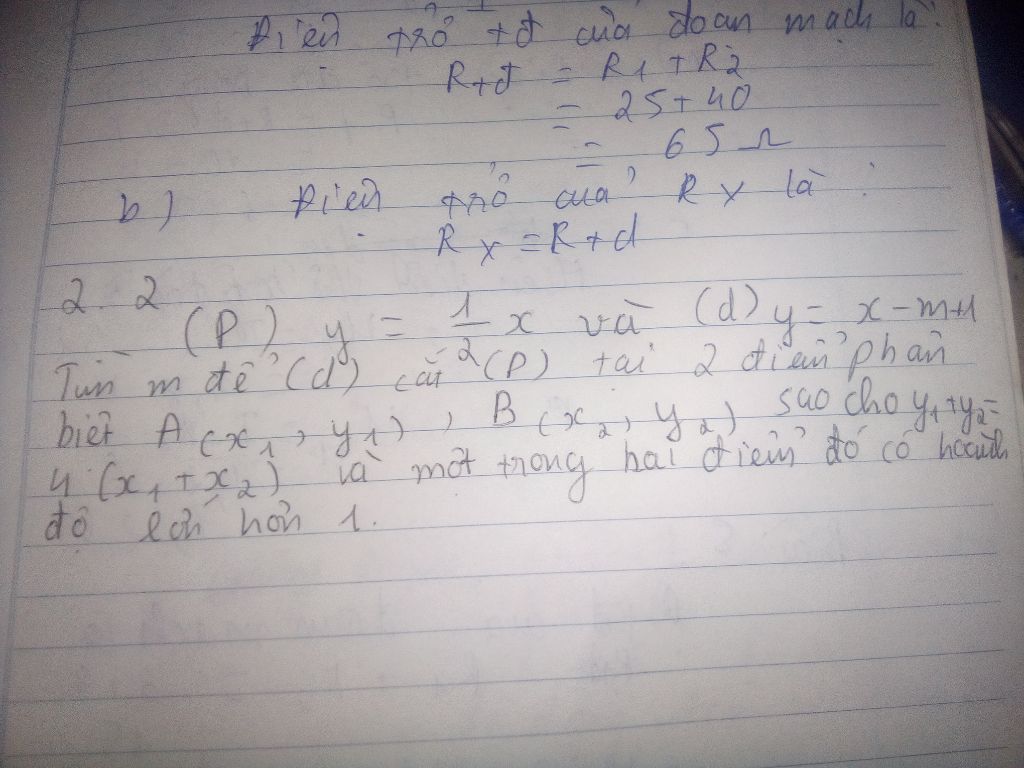 Điện trở tđ của đoạn mạch là:
Rtđ = R1 + R2
= 25 + 40
= 65 Ω
b) Điện trở của Rx là:
Rx = R+d
2. 2
(P) y = 1/2 x và (d) y = x - m+1
Tìm m để (d) cắt (P) tại 2 điểm phân
biệt A (x1, y1), B (x2, y2) sao cho y1+y2=
4 (x1 + x2) và một trong hai điểm đó có hoành
độ lớn hơn 1.